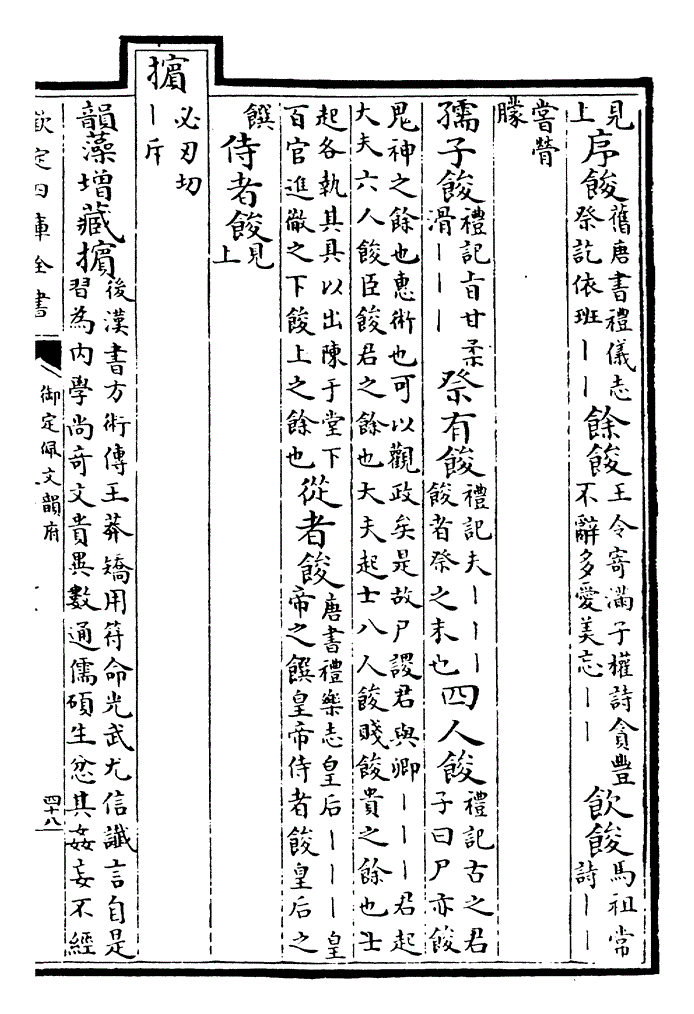 見
上
序餕
舊唐書禮儀志
祭訖依班丨丨
餘餕
王令寄滿子權詩貪豐
不辭多愛美忘丨丨
飲餕
馬祖常
詩丨丨
嘗膋
朦
孺子餕
禮記旨甘柔
滑丨丨丨
祭有餕
禮記夫丨丨丨
餕者祭之末也
四人餕
禮記古之君
子曰尸亦餕
鬼神之餘也惠術也可以觀政矣是故尸謖君與卿丨丨丨君起
大夫六人餕臣餕君之餘也大夫起士八人餕賤餕貴之餘也士
起各執其具以出陳于堂下
百官進徹之下餕上之餘也
從者餕
唐書禮樂志皇后丨丨丨皇
帝之饌皇帝侍者餕皇后之
饌
侍者餕
見
上
擯
必刃切
丨斥
韻藻增
藏擯
後漢書方術傳王莽矯用符命光武尤信讖言自是
習為内學尚奇文貴異數通儒碩生忿其姦妄不經
欽定四庫全書
御定佩文韻府
四十八